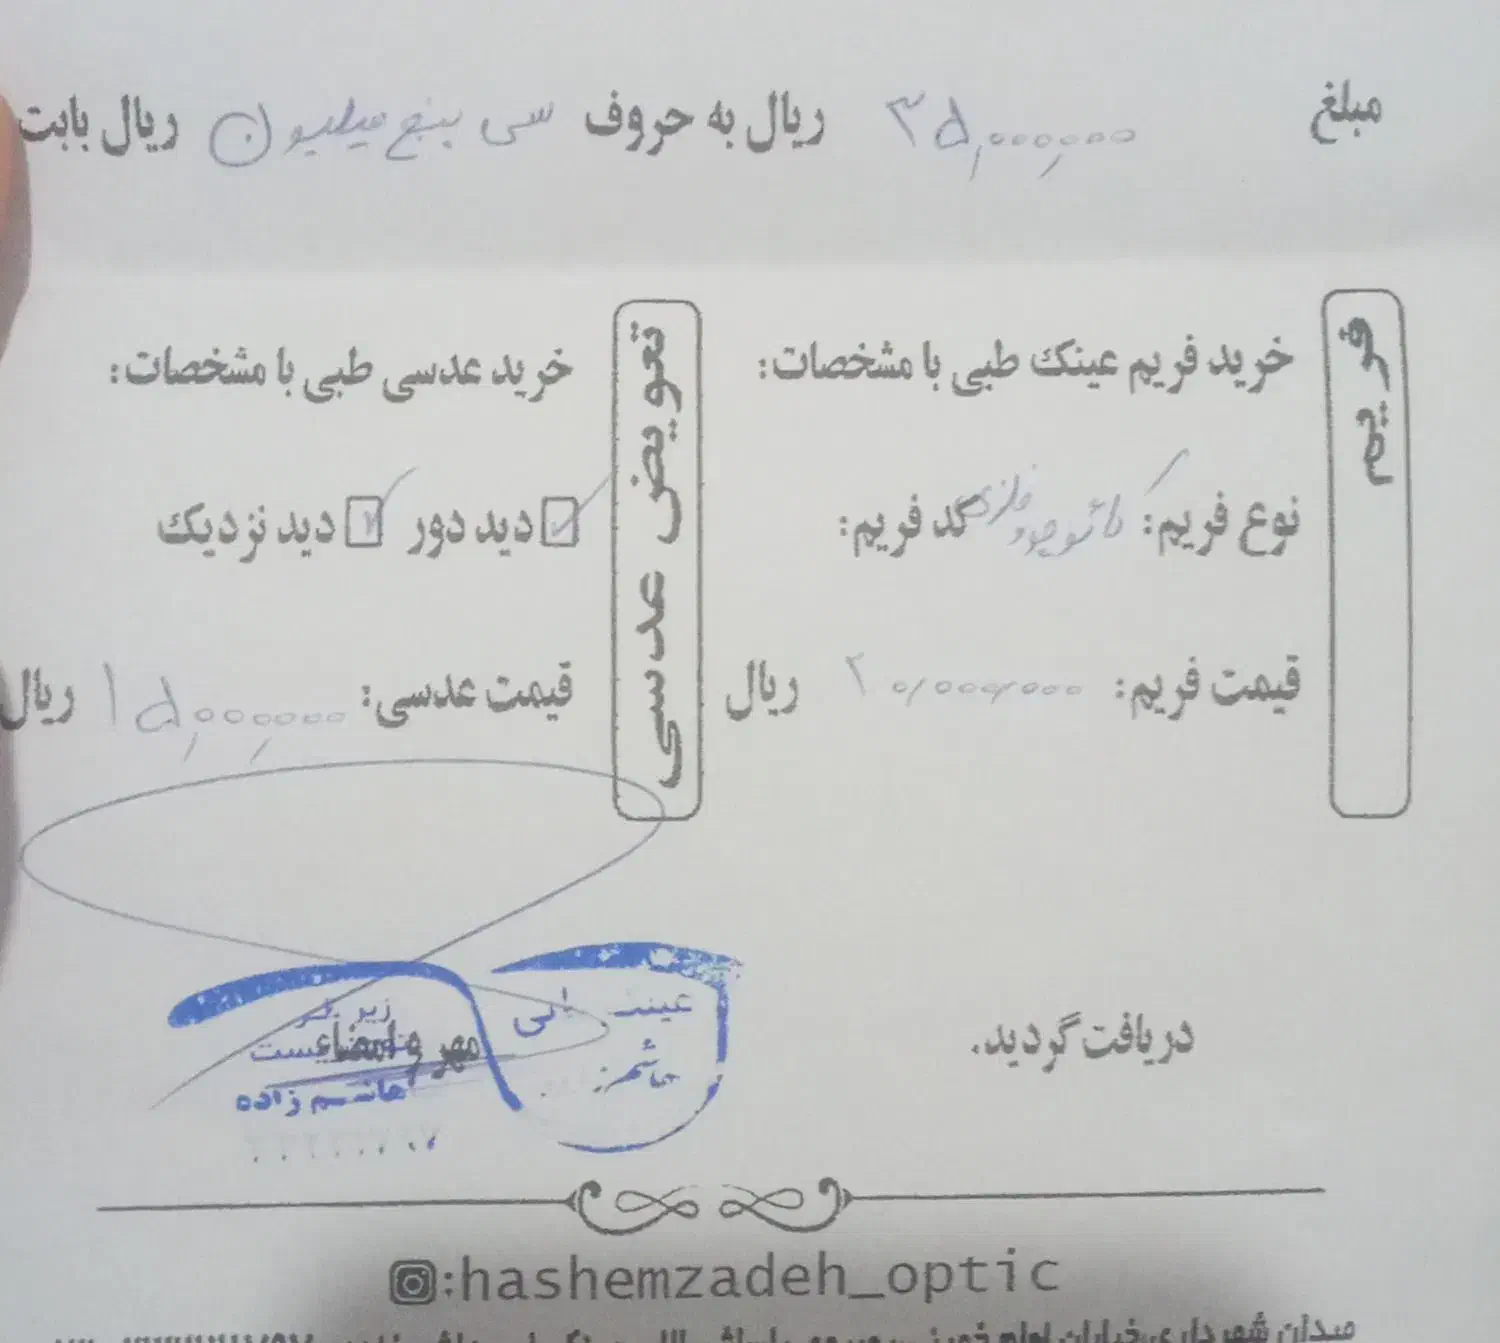 مبلغ ۳۵,۰۰۰,۰۰۰ ریال به حروف سی پنج میلیون ریال بابت
فریم
خرید فریم عینک طبی با مشخصات:
نوع فریم: کائوچو فلزی کد فریم:
قیمت فریم: ۲۰,۰۰۰,۰۰۰ ریال
تعویض عدسی
خرید عدسی طبی با مشخصات:
دید دور دید نزدیک
قیمت عدسی: ۱۵,۰۰۰,۰۰۰ ریال
دریافت گردید.
مهر و امضاء
زیر نظر
هاشم زاده
:hashemzadeh_optic
میدان شهرداری خیابان امام خمینی